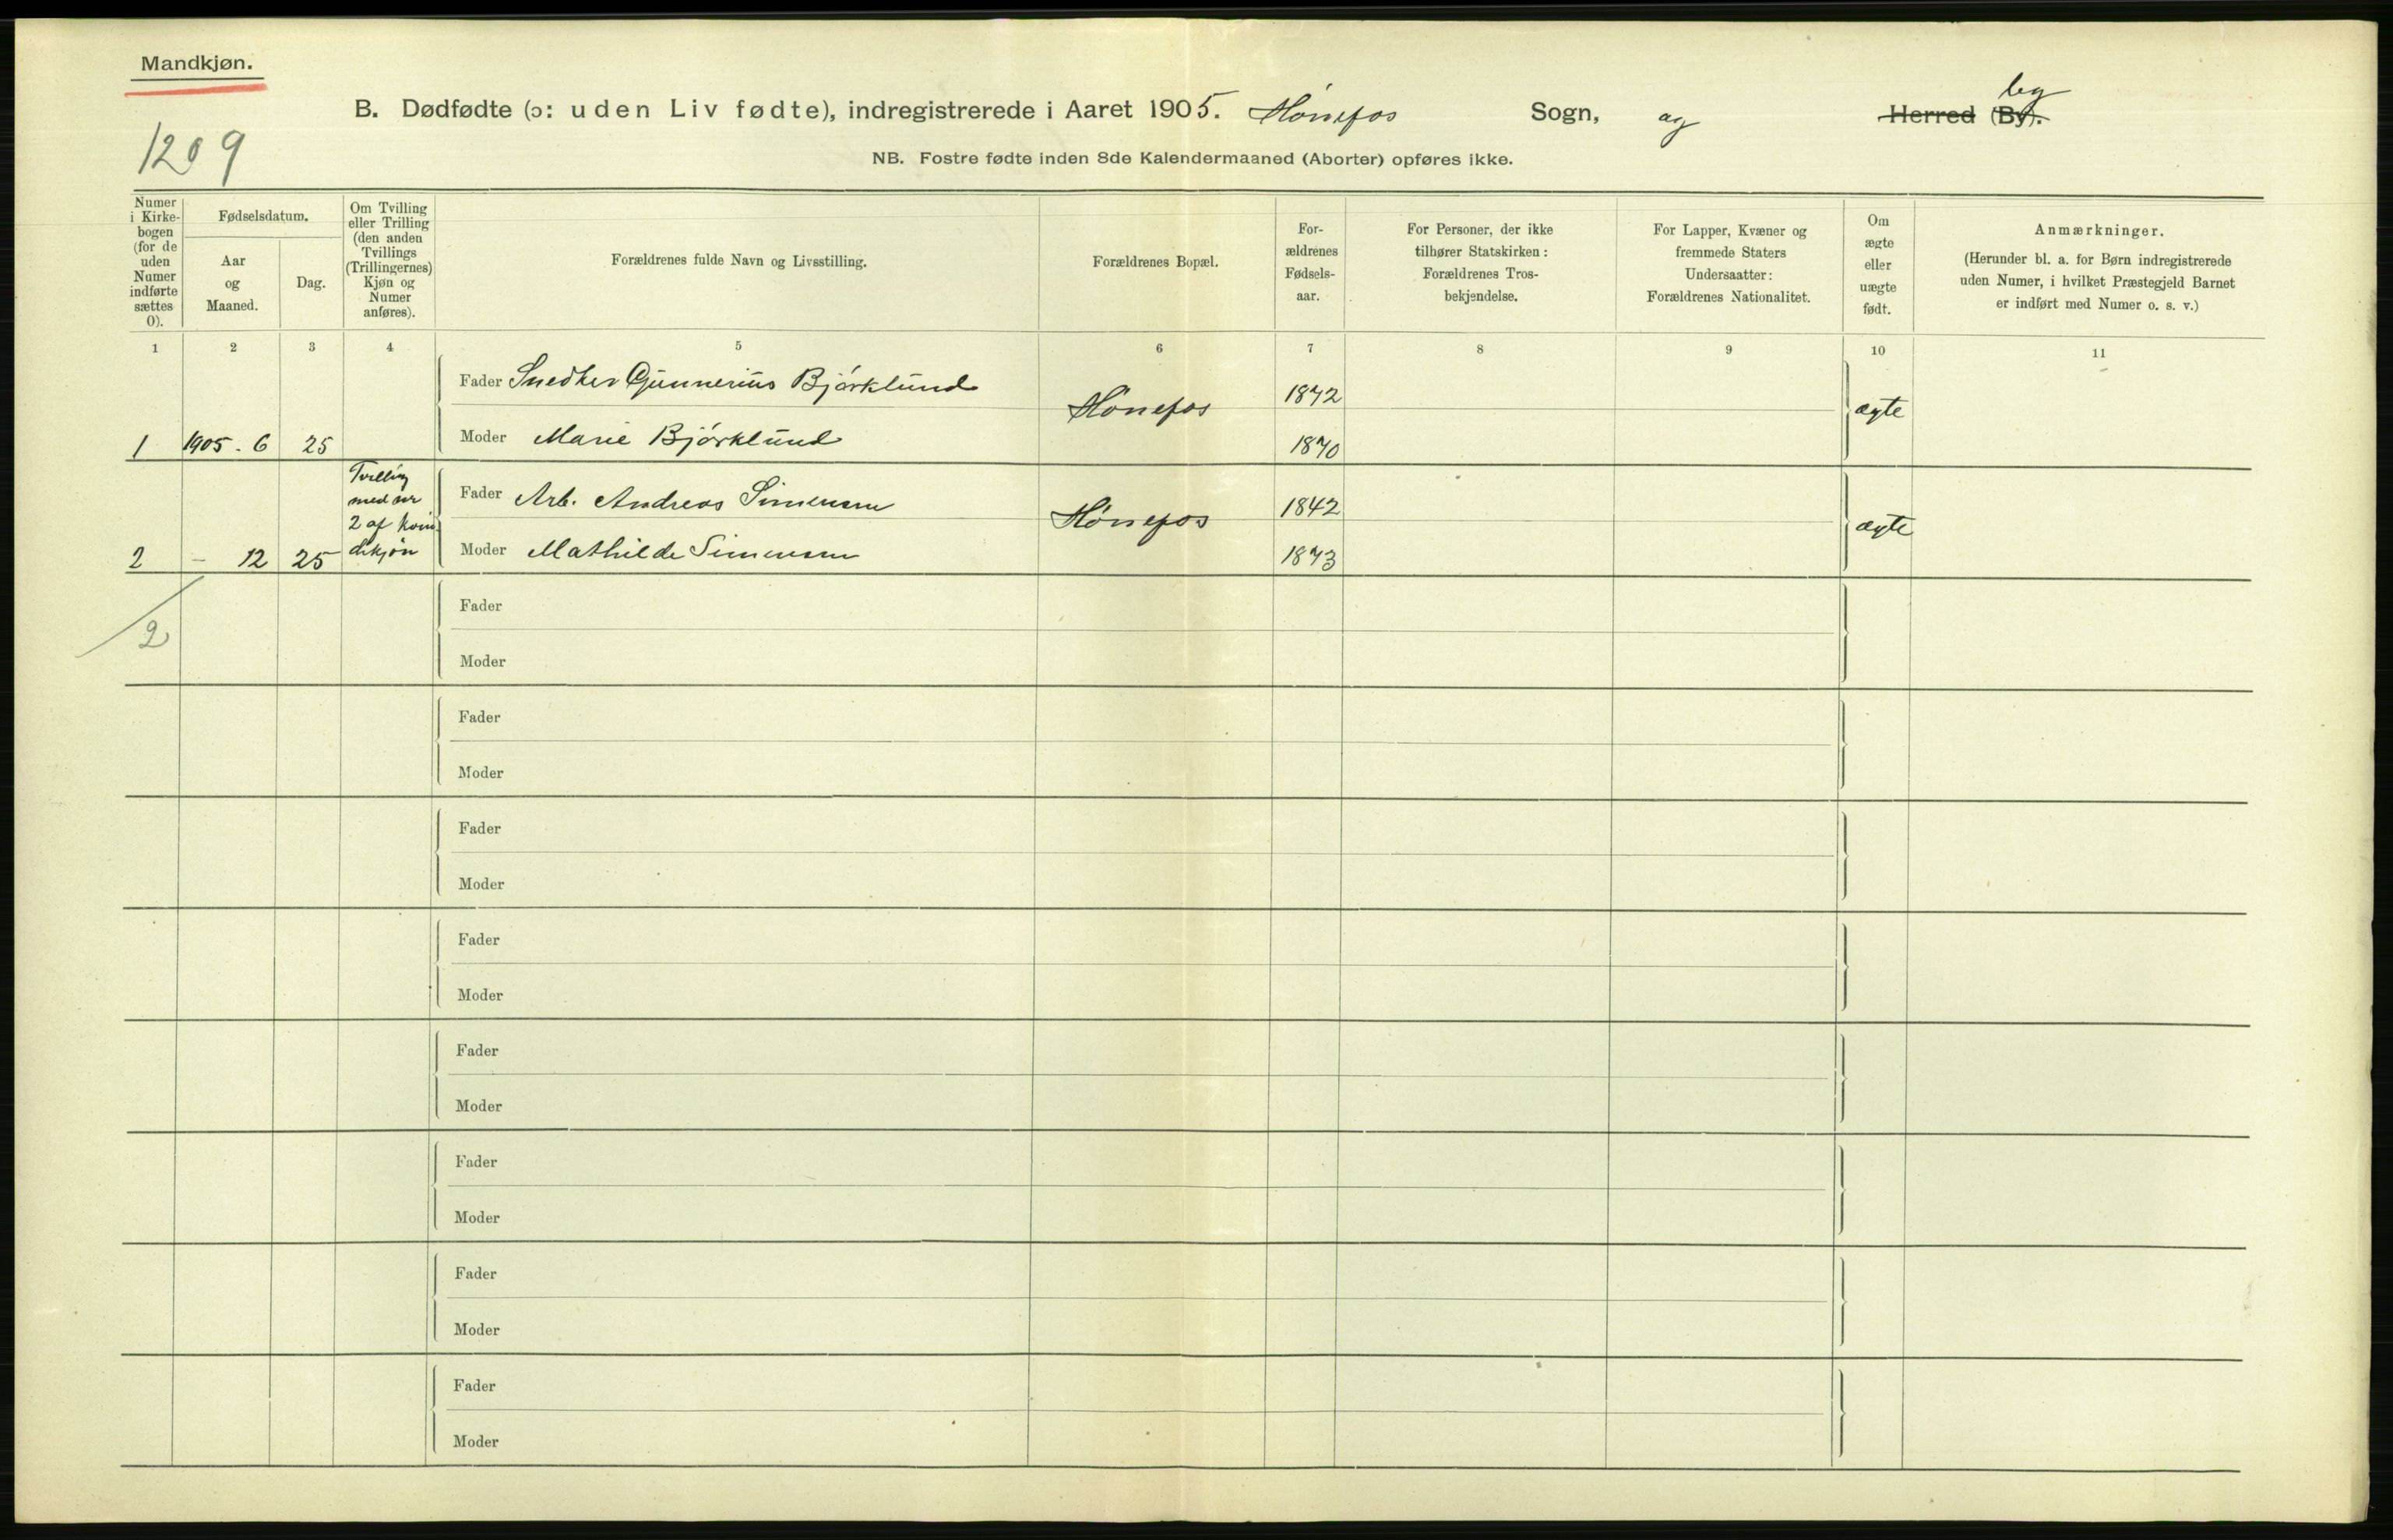 Mandkjøn.
1209
B. Dødfødte (ɔ: uden Liv fødte), indregistrerede i Aaret 1905. Hönefos Sogn, og Herred (By). by
NB. Fostre fødte inden 8de Kalendermaaned (Aborter) opføres ikke.
Numer i Kirke-bogen (for de uden Numer indførte sættes 0).
Fødselsdatum.
Aar og Maaned.
Dag.
Om Tvilling eller Trilling (den anden Tvillings (Trillingernes) Kjøn og Numer anføres).
Forældrenes fulde Navn og Livsstilling.
Forældrenes Bopæl.
For-ældrenes Fødsels-aar.
For Personer, der ikke tilhører Statskirken: Forældrenes Tros-bekjendelse.
For Lapper, Kvæner og fremmede Staters Undersaatter: Forældrenes Nationalitet.
Om ægte eller uægte født.
Anmærkninger.
(Herunder bl. a. for Børn indregistrerede uden Numer, i hvilket Præstegjeld Barnet er indført med Numer o. s. v.)
1 2 3 4 5 6 7 8 9 10 11
Fader Snedker Gunnerius Björklund Hönefos 1872 ægte
1 1905. 6 25 Moder Marie Björklund 1870
Tvilling
med nr
2 af kvin
dekjøn
Fader Arb. Andreas Simensen Hönefos 1842 ægte
2 — 12 25 Moder Mathilde Simensen 1873
2
Fader
Moder
Fader
Moder
Fader
Moder
Fader
Moder
Fader
Moder
Fader
Moder
Fader
Moder
Fader
Moder